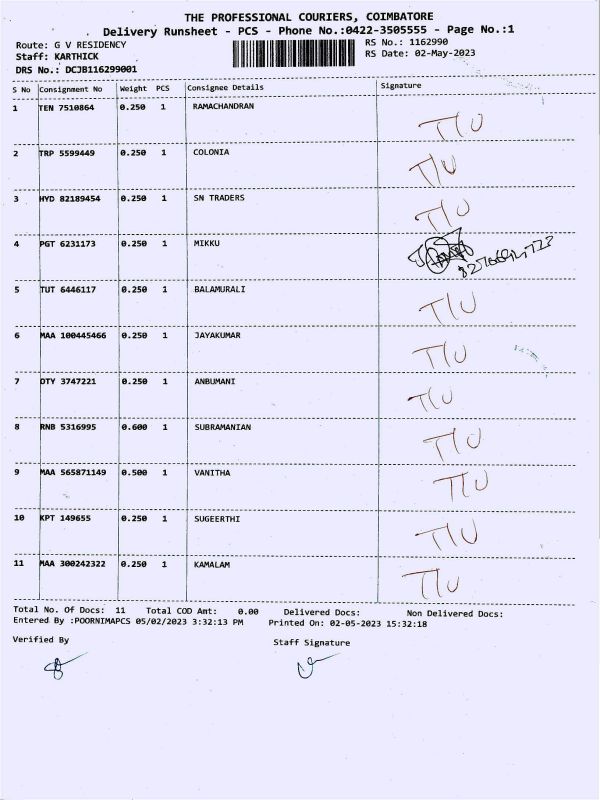 THE PROFESSIONAL COURIERS, COIMBATORE
Delivery Runsheet - PCS - Phone No.:0422-3505555 - Page No.:1
Route: G V RESIDENCY
RS No.: 1162990
Staff: KARTHICK
RS Date: 02-May-2023
DRS No.: DCJB116299001
S No Consignment No Weight PCS Consignee Details Signature
1 TEN 7510864 0.250 1 RAMACHANDRAN T/U
2 TRP 5599449 0.250 1 COLONIA T/U
3 HYD 82189454 0.250 1 SN TRADERS T/U
4 PGT 6231173 0.250 1 MIKKU
5 TUT 6446117 0.250 1 BALAMURALI T/U
6 MAA 100445466 0.250 1 JAYAKUMAR T/U
7 OTY 3747221 0.250 1 ANBUMANI T/U
8 RNB 5316995 0.600 1 SUBRAMANIAN T/U
9 MAA 565871149 0.500 1 VANITHA T/U
10 KPT 149655 0.250 1 SUGEERTHI T/U
11 MAA 300242322 0.250 1 KAMALAM T/U
Total No. Of Docs: 11 Total COD Amt: 0.00 Delivered Docs: Non Delivered Docs:
Entered By :POORNIMAPCS 05/02/2023 3:32:13 PM Printed On: 02-05-2023 15:32:18
Verified By
Staff Signature